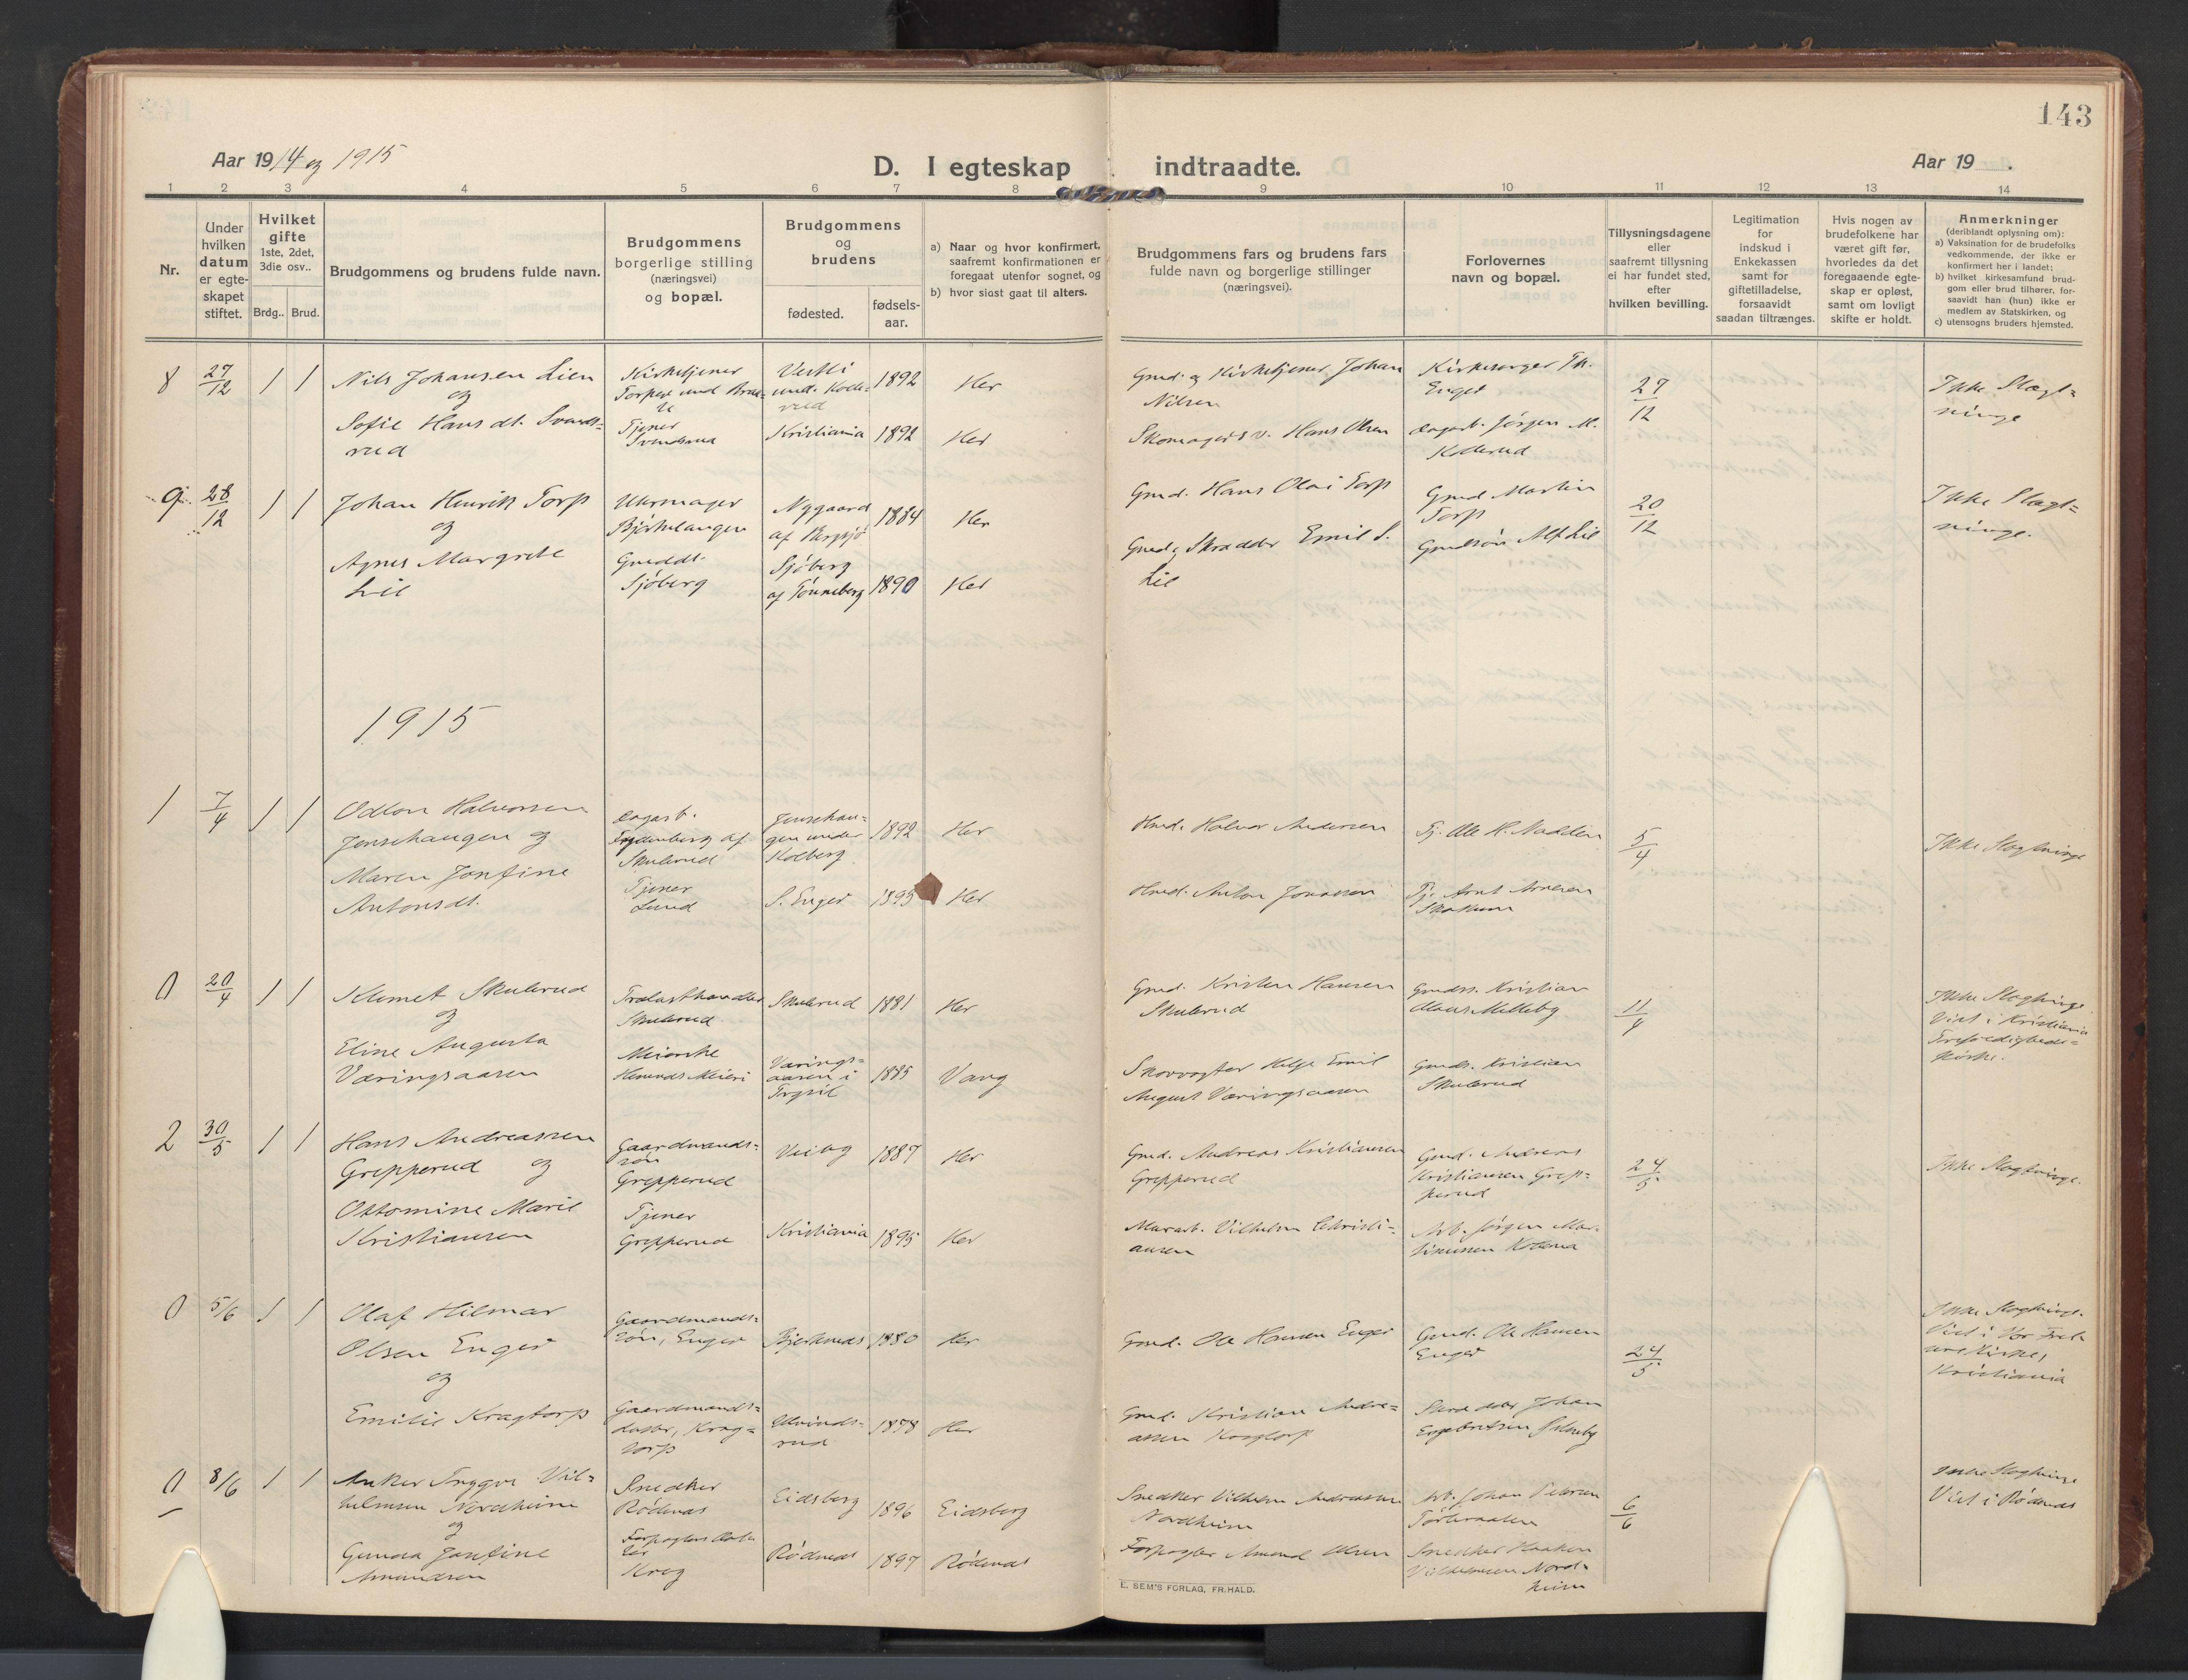 143
Aar 1914 og 1915
D. I egteskap indtraadte.
Aar 19 .
1 2 3 4 5 6 7 8 9 10 11 12 13 14
Nr.
Under
hvilken
datum
er egte-
skapet
stiftet.
Hvilket
gifte
1ste, 2det,
3die osv..
Brdg.. Brud.
Brudgommens og brudens fulde navn.
Brudgommens
borgerlige stilling
(næringsvei)
og bopæl.
Brudgommens
og
brudens
fødested.
fødsels-
aar.
a) Naar og hvor konfirmert,
saafremt konfirmationen er
foregaat utenfor sognet, og
b) hvor sidst gaat til alters.
Brudgommens fars og brudens fars
fulde navn og borgerlige stillinger
(næringsvei).
Forlovernes
navn og bopæl.
Tillysningsdagene
eller
saafremt tillysning
ei har fundet sted,
efter
hvilken bevilling.
Legitimation
for
indskud i
Enkekassen
samt for
giftetilladelse,
forsaavidt
saadan tiltrænges.
Hvis nogen av
brudefolkene har
været gift før,
hvorledes da det
foregaaende egte-
skap er opløst,
samt om lovligt
skifte er holdt.
Anmerkninger
(deriblandt oplysning om):
a) Vaksination for de brudefolks
vedkommende, der ikke er
konfirmert her i landet;
b) hvilket kirkesamfund brud-
gom eller brud tilhører, for-
saavidt han (hun) ikke er
medlem av Statskirken, og
c) utensogns bruders hjemsted.
8 27/12 1 1
Nils Johansen Lien
og
Sofie Hansdt. Svends-
rud
Kirketjener
Tjener
Kristiania
1892 Her
1892 Her
Gmd. og Kirketjener Johan
Nilsen
Skomagersv. Hans Olsen
Kirkesanger Th.
Enger
Dagarb. Jørgen M.
Kollerud
27/12
Ikke Slægt=
ninge
9 28/12 1 1
Johan Henrik Torp
og
Agnes Margrete
Lie
Uhrmager
Bjørkelangen
Gmddt.
Sjøberg
Nygaard
Sjøberg
af Tønneberg
1884 Her
1890 Her
Gmd. Hans Olai Torp
Gmd. Skrædder Emil S.
Lie
Gmd Martin
Torp
Gmdsøn Alf Lie
20/12
Ikke Slægt=
ninge.
1915
1 7/4 1 1
Odlon Halvorsen
Jensehaugen og
Maren Jonfine
Antonsdt.
Dagarb.
Skulerud
Tjener
Lund
Jensehau=
gen under
Kolberg
S. Enger
1892 Her
1895 Her
Hmd. Halvor Andersen
Hmd. Anton Jonassen
Tj. Ole H. Nadden
Tj. Arnt Arnesen
5/4
Ikke Slægtninge
0 20/4 1 1
Klemet Skulerud
og
Eline Augusta
Væringsaasen
Trælasthandler
Skulerud
Meierske
Hemnes Meieri
Skulerud
Værings=
aasen i
Trysil
1881 Her
1885 Vang
Gmd. Kristen Hansen
Skulerud
Skovvogter Helge Emil
August Væringsaasen
Gmds. Kristian
Gmds. Kristian
Skulerud
11/4
Ikke Slægtninge
Viet i Kristiania
Trefoldigheds=
kirke.
2 30/5 1 1
Hans Andreassen
Grepperud og
Ottomine Marie
Kristiansen
Gaardmands=
søn
Grepperud
Tjener
Grepperud
Kristiania
1887 Her
1895 Her
Gmd. Andreas Kristiansen
Grepperud
Murarb. Vilhelm Christi=
ansen
Gmd. Andreas
Kristiansen Grep=
perud
Arb. Jørgen Mar-
tinusen
24/5
Ikke Slægtninge.
0 5/6 1 1
Olaf Hilmar
Olsen Enger
og
Emilie Kragtorp
Gaardmands=
søn, Enger
Gaardmands=
datter, Krag=
torp
Bjerknes
1880 Her
1878 Her
Gmd. Ole Hansen Enger
Gmd. Kristian Andre=
assen Kragtorp
Gmd. Ole Hansen
Enger
Skrædder Johan
24/5
Ikke Slægtninge.
Viet i Vor Frel-
sers Kirke,
Kristiania
0 8/6 1 1
Anker Trygve Vil=
helmsen Nordheim
og
Gunda Jonfine
Amundsen
Snedker
Rødenes
Krog
Eidsberg
Rødenes
1896 Eidsberg
1897 Rødenes
Snedker Vilhelm Andreassen
Nordheim
Forpagter Amund Olsen
Arb. Johan Petersen
Snedker Haakon
Vilhelmsen Nord-
heim
6/6
Ikke Slægtninge
Viet i Rødenes
E. SEM'S FORLAG, FR.HALD.